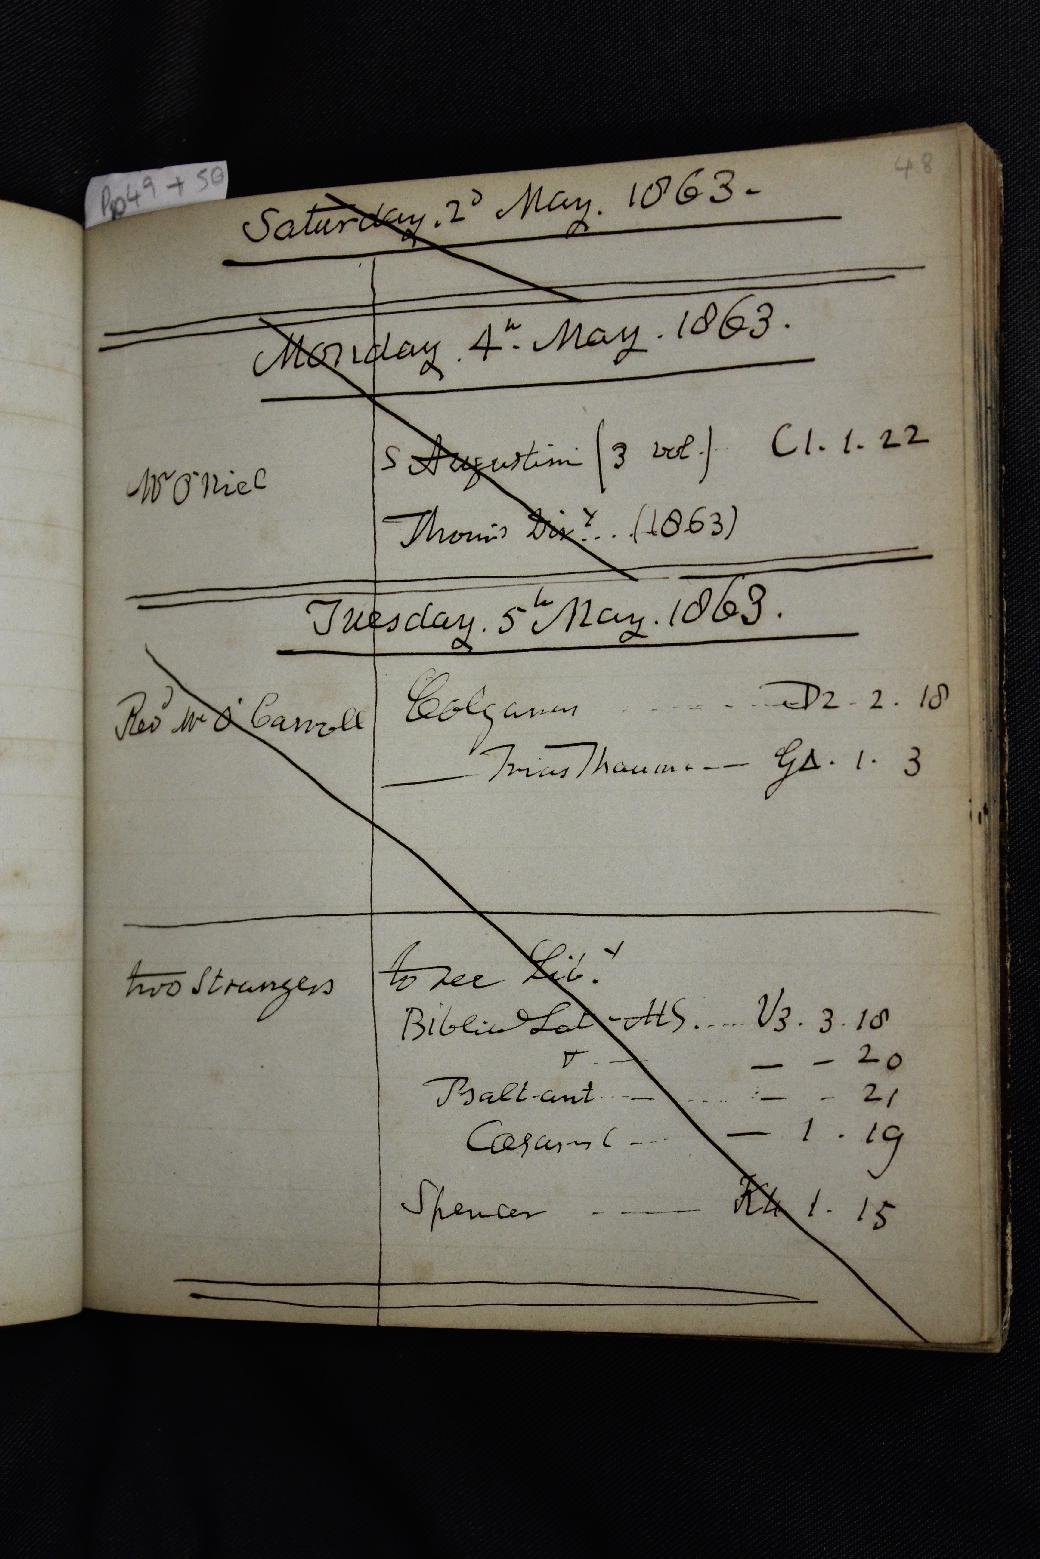 Pp 49 + 50
48
Saturday. 2d May. 1863.
Monday. 4th. May. 1863.
Mr O'Niel
S Augustin (3 vol.) C1. 1. 22
Thom's Diry... (1863)
Tuesday. 5th May. 1863.
Revd Mr O'Carroll
Colganus D2. 2. 18
Trias Thaum GΔ. 1. 3
two Strangers
to see Liby.
Biblia Lat MS. V3. 3. 18
— — 20
— — 21
— 1. 19
Spencer K4 1. 15